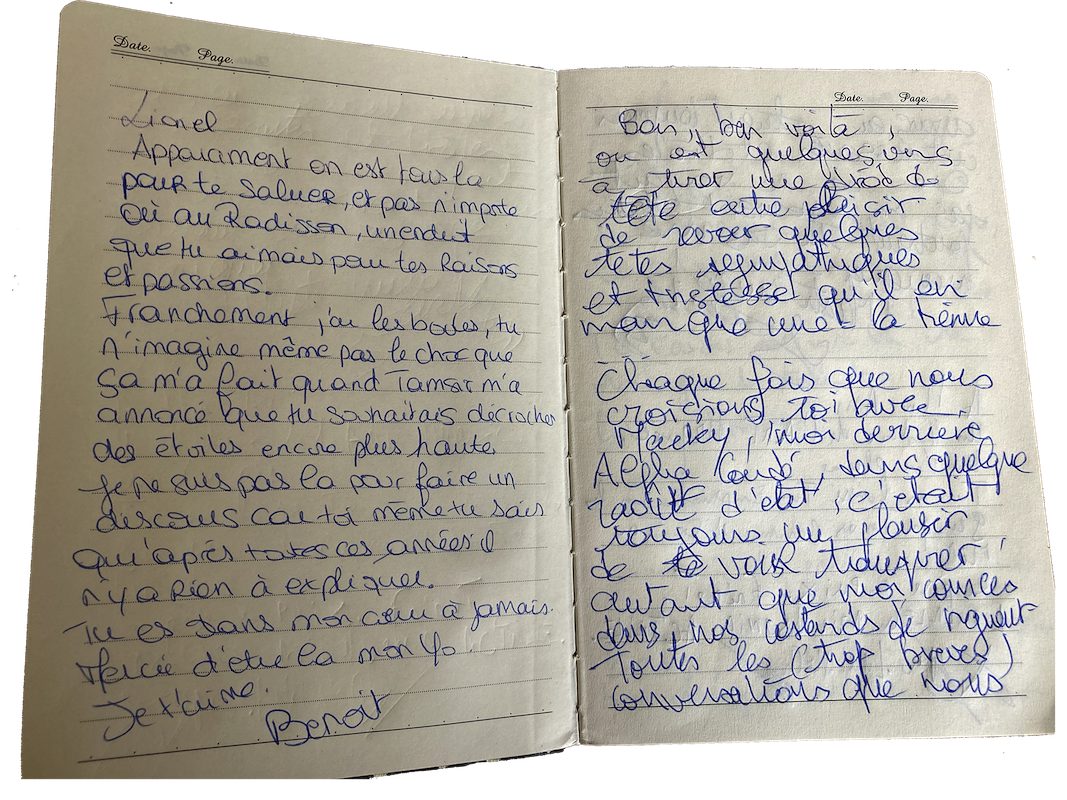 Date.
Page.
Lionel
Apparament on est tous la
pour te saluer, et pas n'importe
où au Radisson, un endroit
que tu aimais pour tes Raisons
et passions.
Franchement j'ai les boules, tu
n'imagine même pas le choc que
ça m'a fait quand Tamsir m'a
annoncé que tu souhaitais décrocher
des étoiles encore plus haute.
Je ne suis pas la pour faire un
discours car toi même tu sais
qu'après toutes ces années il
n'y a Rien à expliquer.
Tu es dans mon cœur à jamais.
Mercie d'etre la mon Yo.
Je t'aime.
Benoit
Date. Page.
Bon, ben voilà,
on est quelques uns
à tirer une drôle de
tête entre plaisir
de revoir quelques
têtes sympathiques
et tristesse qu'il en
manque une - la tienne
Chaque fois que nous
croisions, toi avec
Macky, moi derrière
Alpha Condé, dans quelque
d'etat, c'était
toujours un plaisir
de te voir
autant que moi
dans nos costards de rigueur
Toutes les (trop breves)
conversations que nous